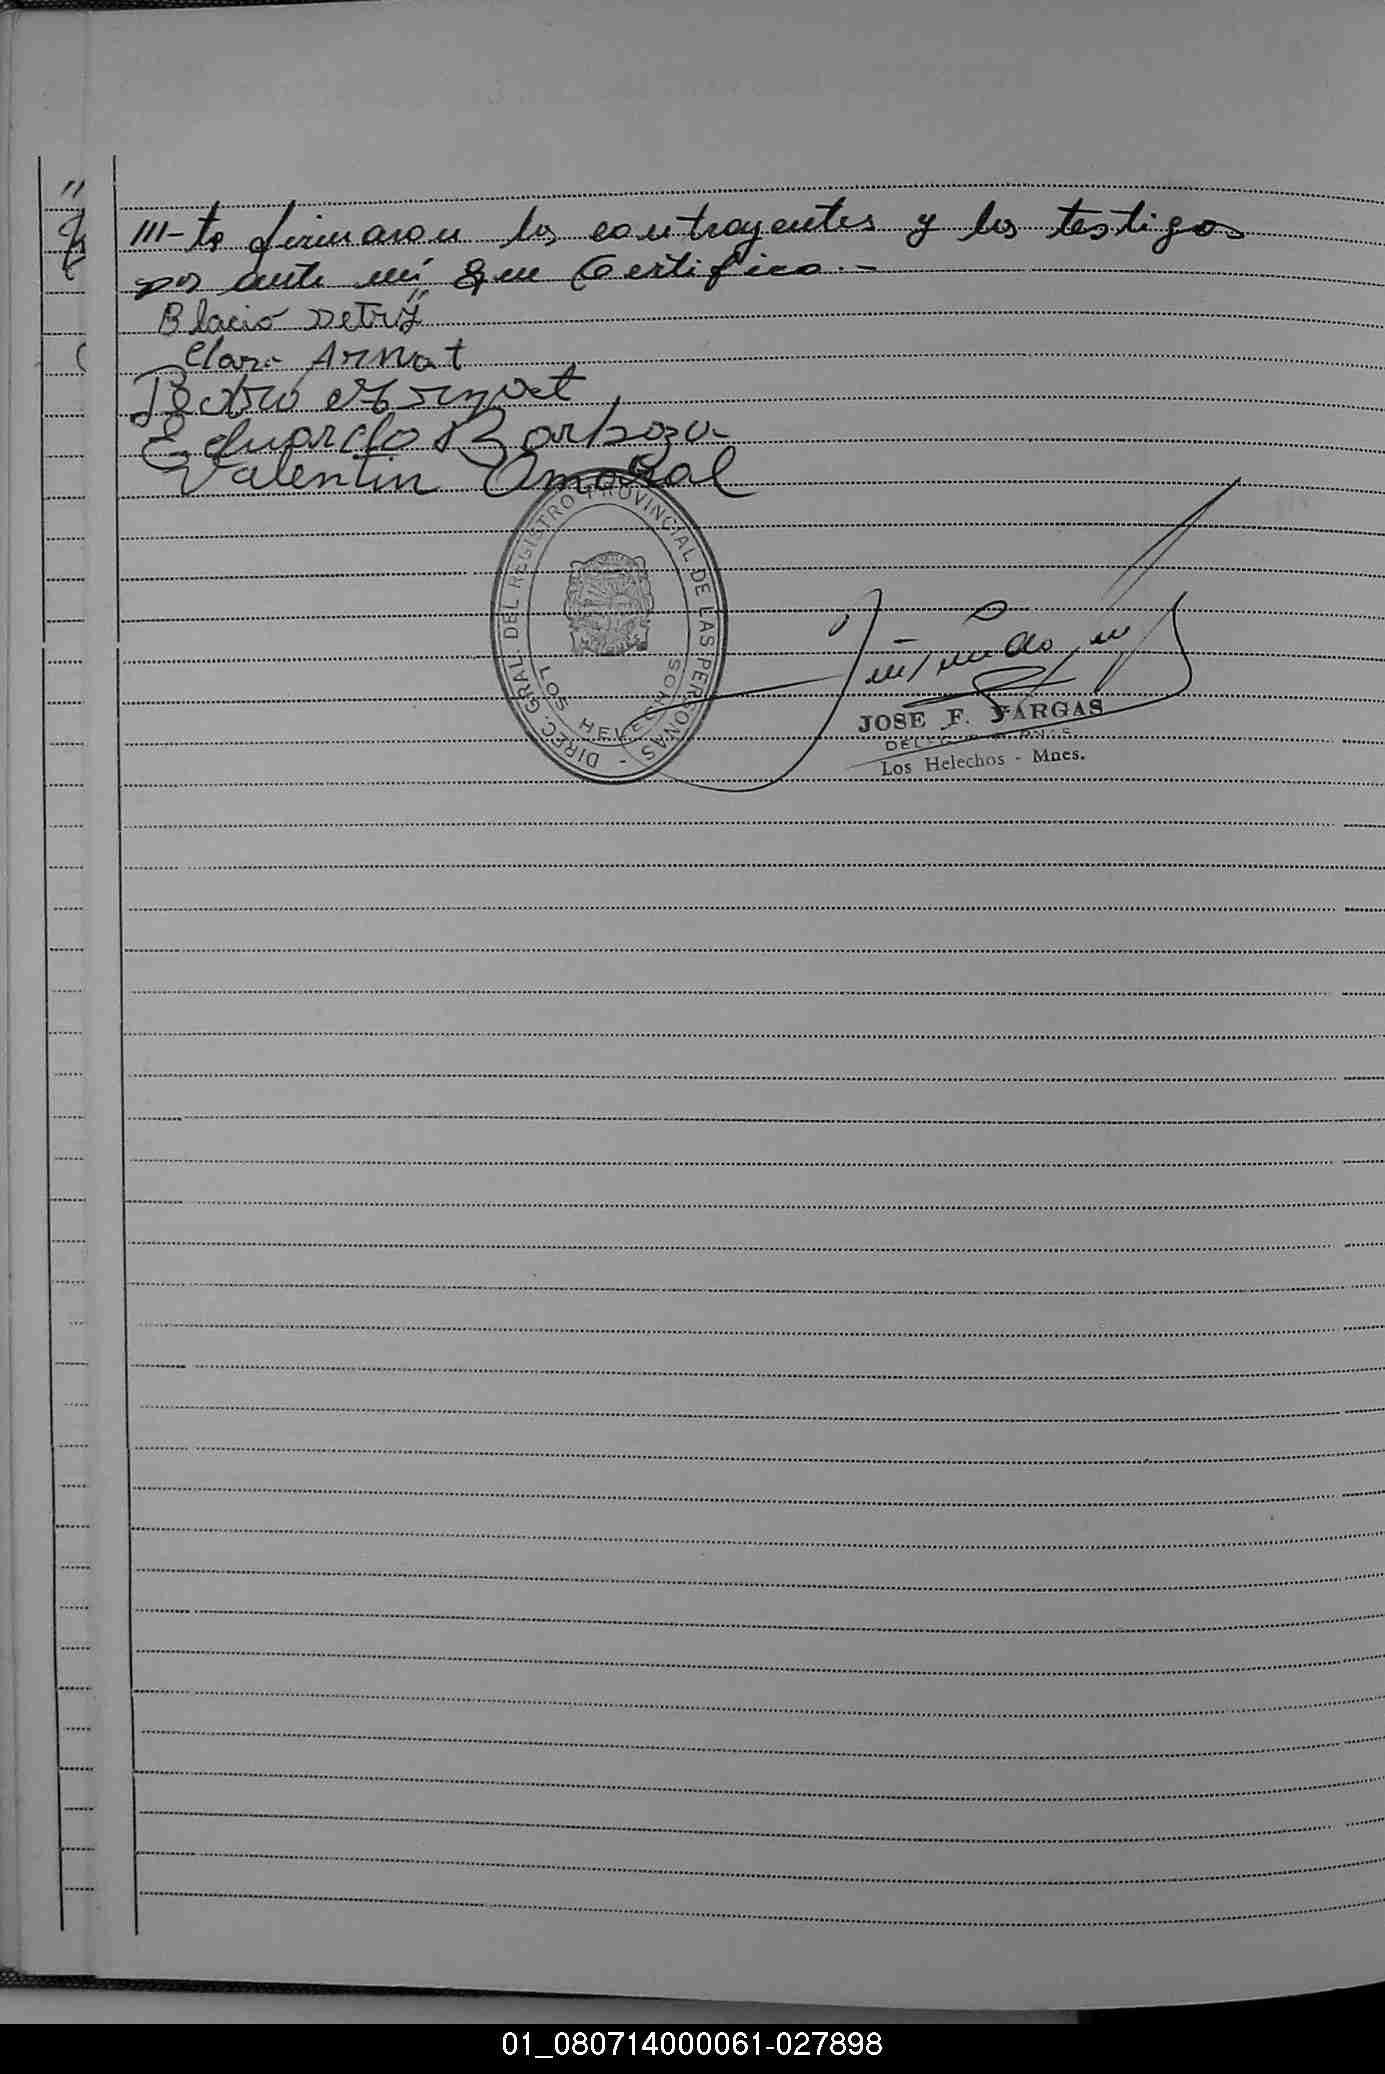 III-ta firmaron los contrayentes y los testigos
por ante mí que Certifico.-
Blacio Detriÿ
Clara Arnat
Pedro Arnat
Eduardo Barboza
Valentin Amaral
DIREC. GRAL. DEL REGISTRO PROVINCIAL DE LAS PERSONAS -
LOS HELECHOS
JOSE F. VARGAS
Los Helechos - Mnes.
01_080714000061-027898